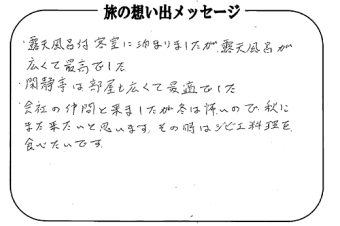 旅の想い出メッセージ
・露天風呂付客室に泊まりましたが、露天風呂が
広くて最高でした
・閑静亭は部屋も広くて最適でした
・会社の仲間と来ましたが冬は怖いので、秋に
また来たいと思います。その時はジビエ料理を
食べたいです。